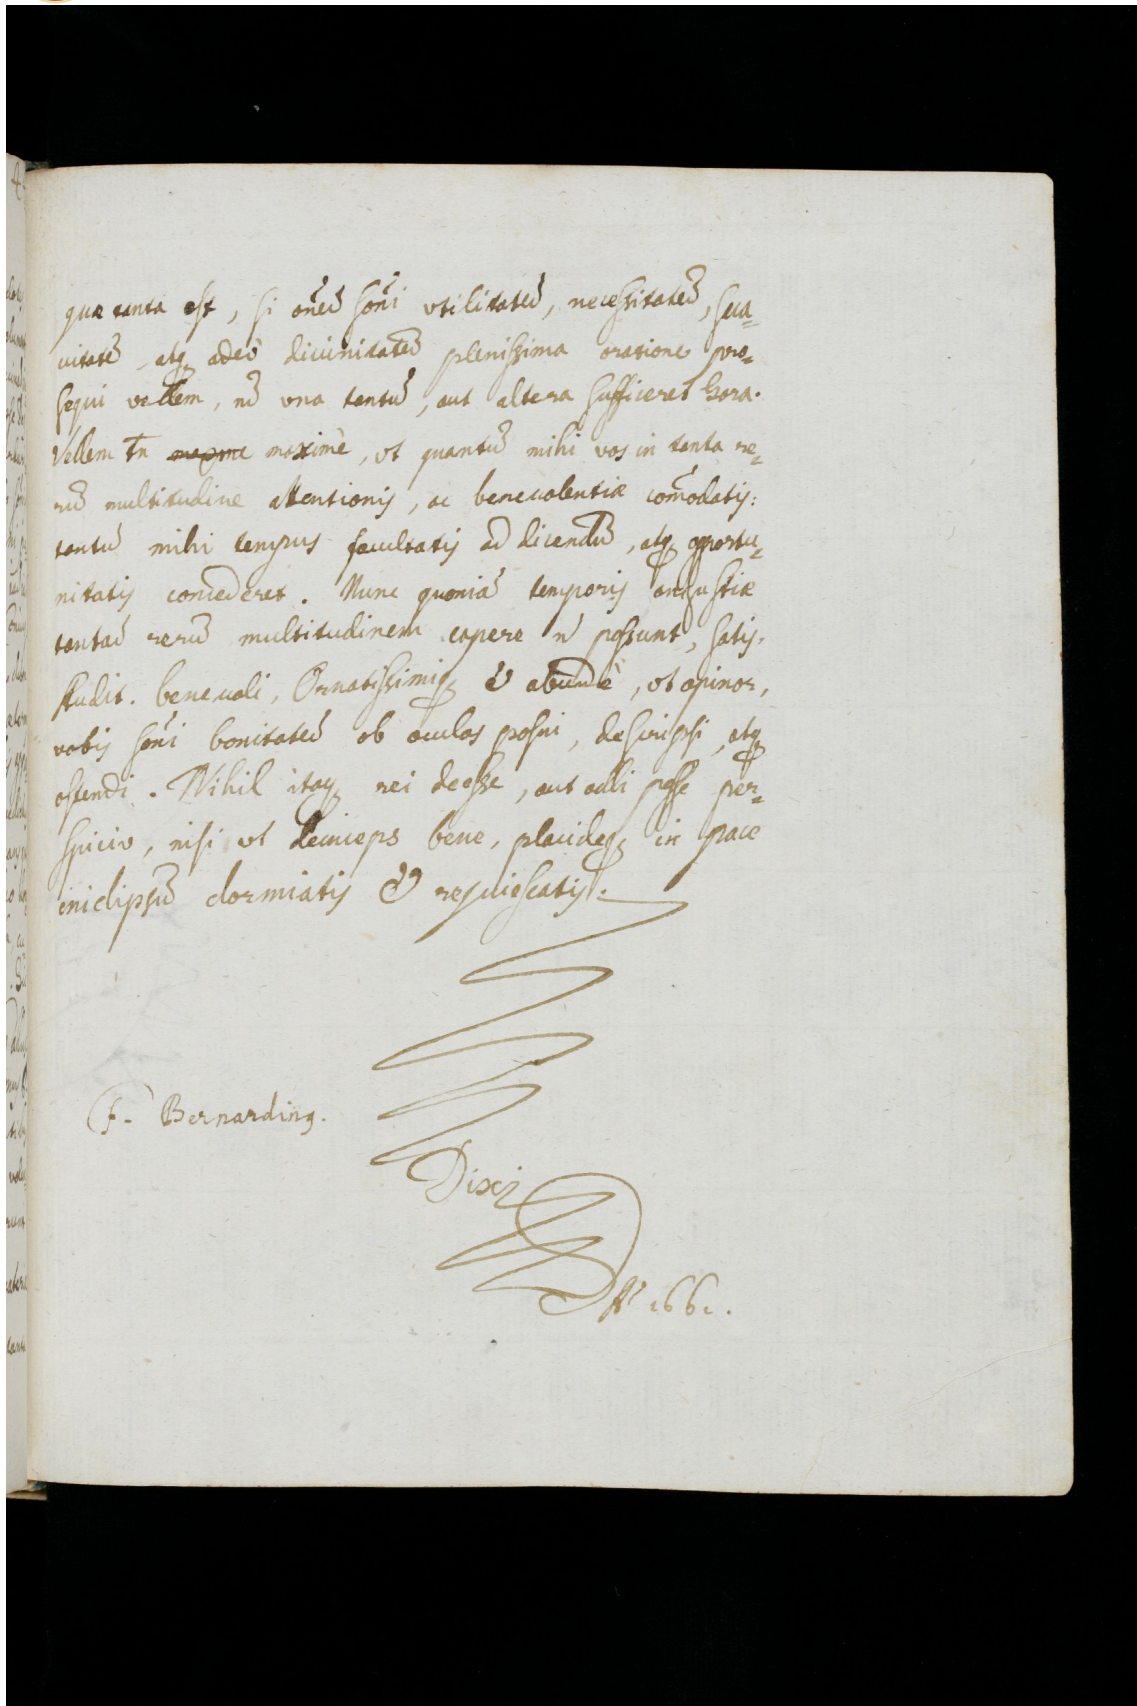 quæ tanta est, si om̃ẽ som̃i vtilitatẽ, necessitatẽ, sua=
uitatẽ, atq; adeò diuinitatẽ plenissima oratione pro=
sequi vellem, nõ vna tantũ, aut altera sufficeret hora.
Vellem tñ maxime maximè, vt quantũ mihi vos in tanta re=
rũ multitudine attentionis, ac beneuolentiæ com̃odatis:
tantũ mihi tempus facultatis ad dicendũ, atq; opportu=
nitatis concederet. Nunc quoniã temporis angustiæ
tantã rerũ multitudinem capere ñ possunt, satis,
Audit. beneuoli, Ornatissimiq; & abundè, vt opinor,
vobis som̃i bonitatẽ ob oculos posui, descripsi, atq;
ostendi. Nihil itaq; rei deesse, aut addi posse per=
spicio, nisi vt deinceps bene, placideq; in pace
in idipsũ dormiatis & requiescatis.
F. Bernardin9.
Dixi
Aº 1661.